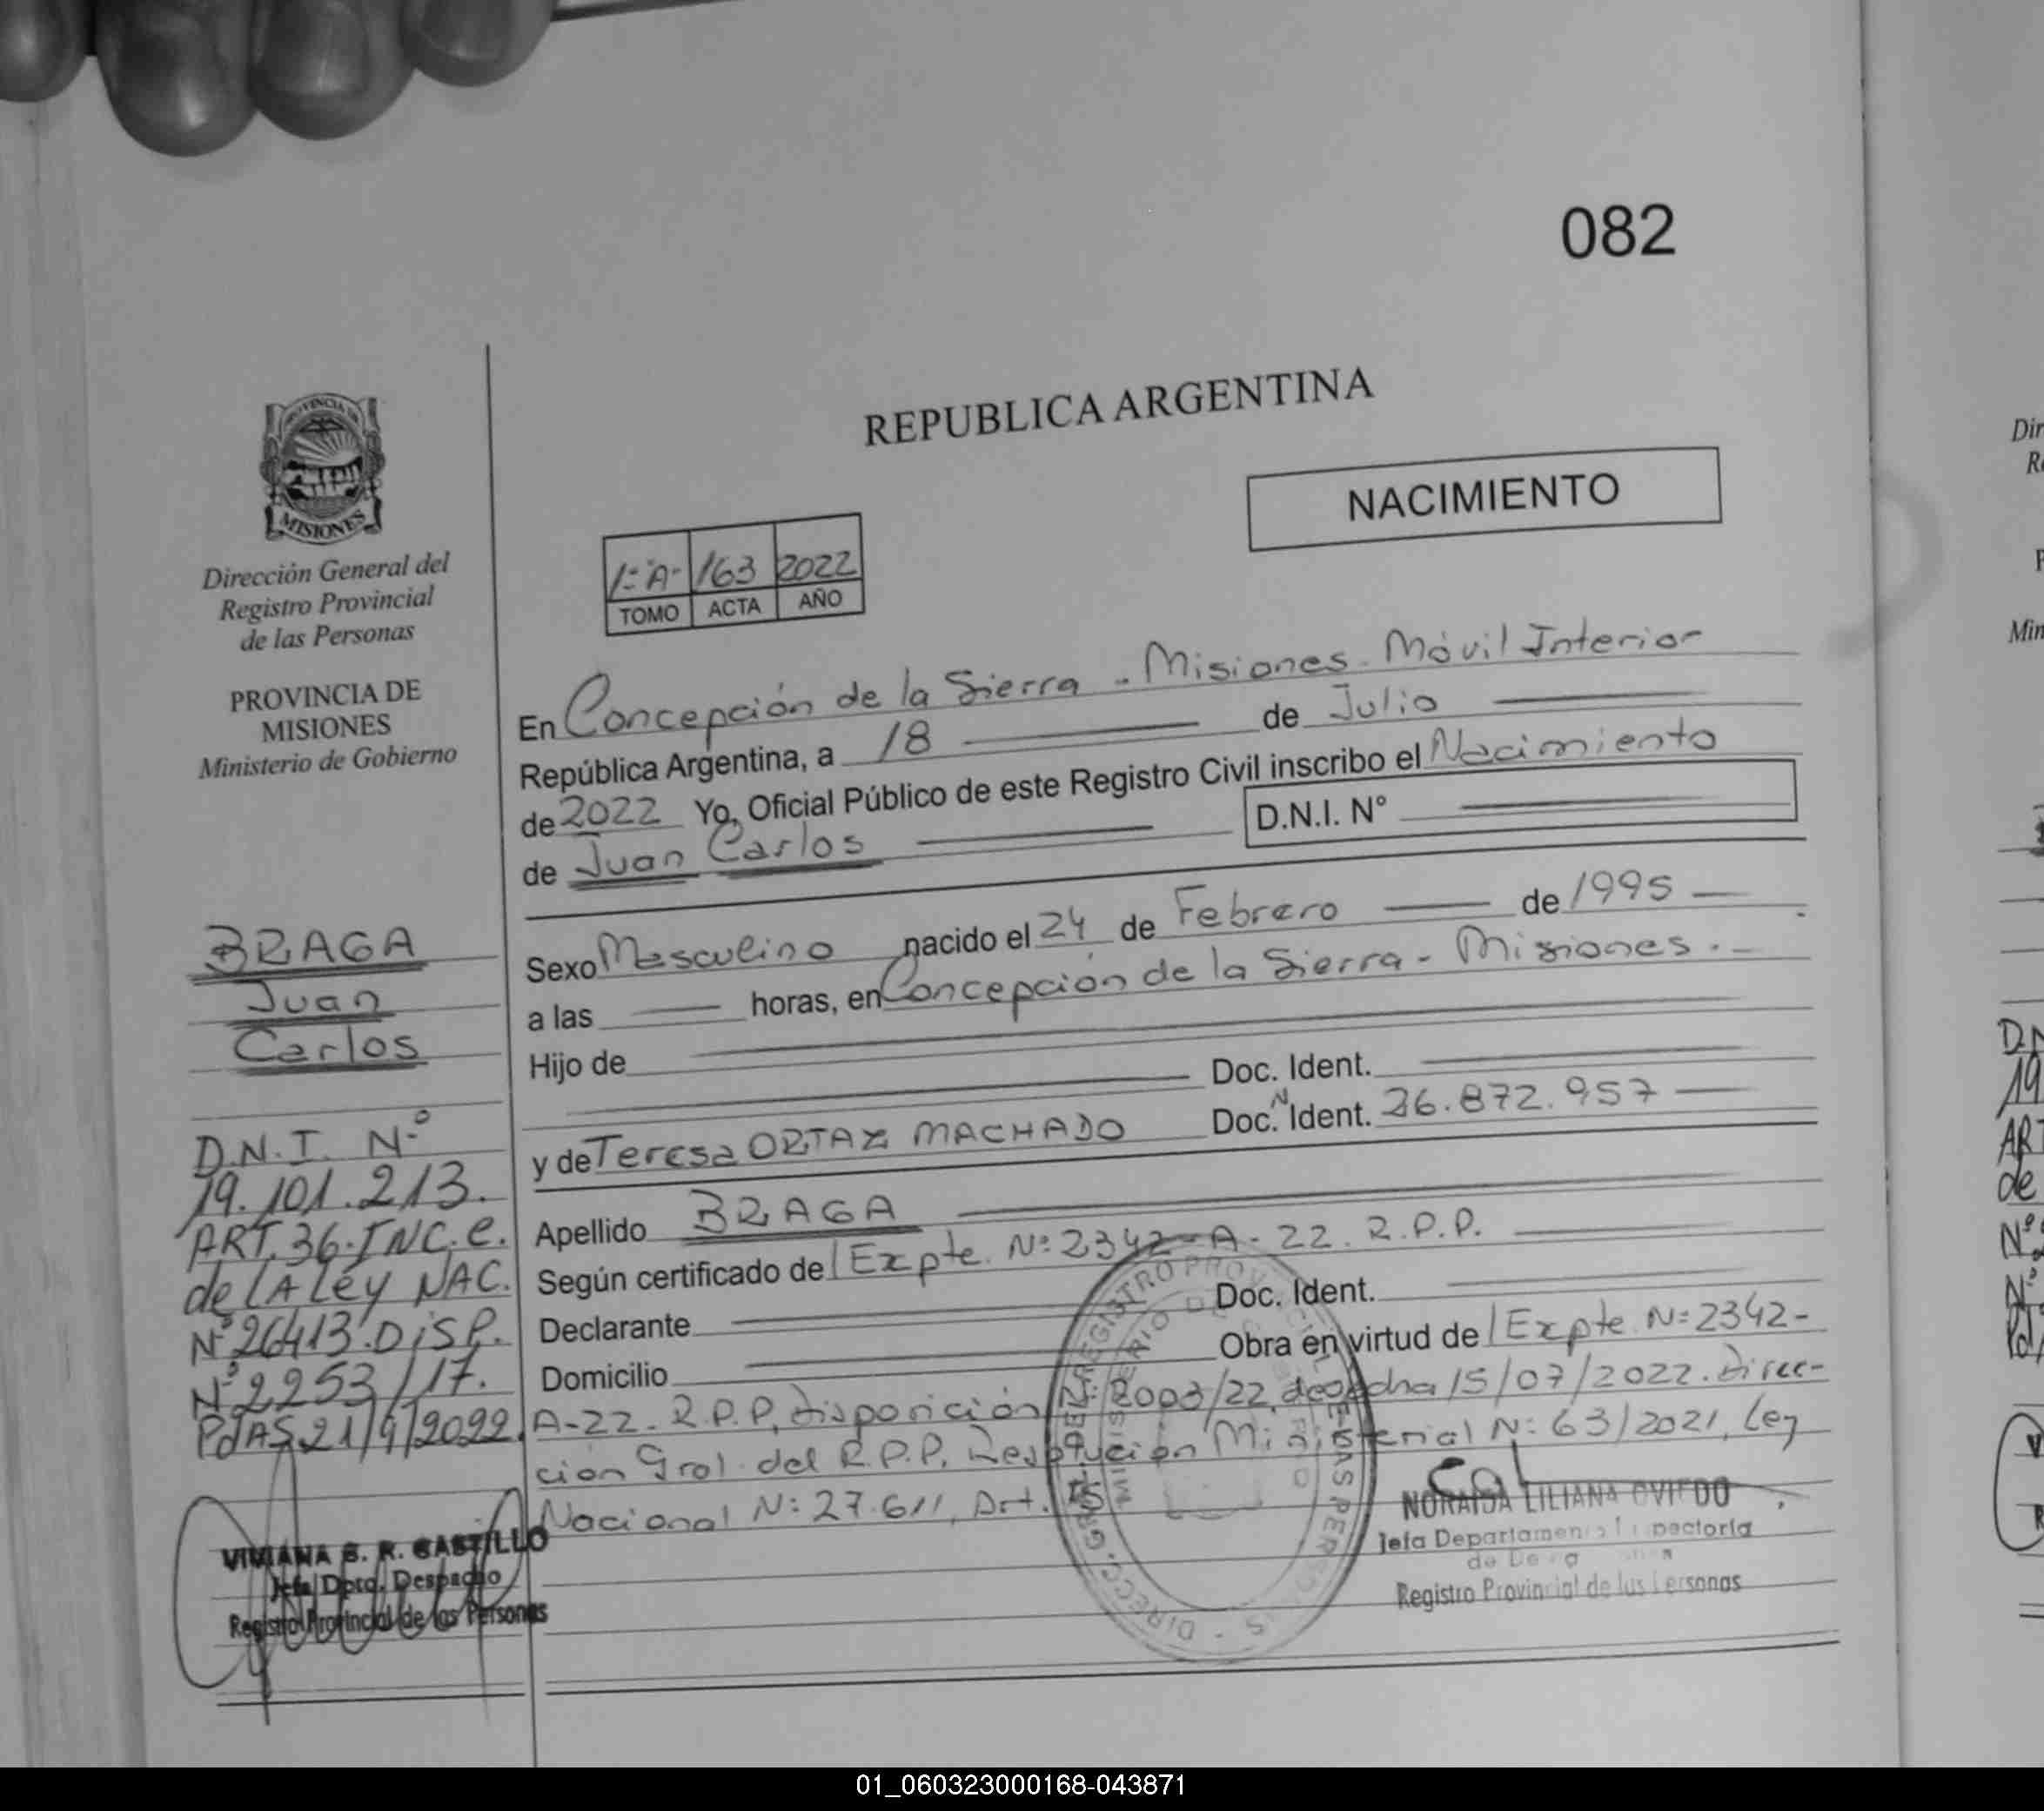 082
PROVINCIA DE
MISIONES
Dirección General del
Registro Provincial
de las Personas
PROVINCIA DE
MISIONES
Ministerio de Gobierno
REPUBLICA ARGENTINA
NACIMIENTO
1º "A" 163 2022
TOMO ACTA AÑO
En Concepción de la Sierra - Misiones - Móvil Interior
República Argentina, a 18 de Julio
de 2022 Yo, Oficial Público de este Registro Civil inscribo el Nacimiento
de Juan Carlos D.N.I. N°
Sexo Masculino nacido el 24 de Febrero de 1995
a las horas, en Concepción de la Sierra - Misiones.
Hijo de
Doc. Ident.
y de Teresa MACHADO Doc. N Ident. 26.872.957
Apellido BRAGA
Según certificado de Expte. Nº 2342-A-22. R.P.P.
Declarante Doc. Ident.
Domicilio Obra en virtud de Expte Nº 2342-
A-22. R.P.P, Disposición Nº 2003/22, de fecha 15/07/2022. Direc-
ción Gral. del R.P.P. Resolución Ministerial Nº 63/2021, Ley
Nacional Nº 27.611, Art.
BRAGA
Juan
Carlos
D.N.I. Nº
19.101.213.
ART. 36. INC. e.
de LA Ley NAC.
Nº 26413. DISP.
Nº 2253/17.
PdAS 21/9/2022.
VIVIANA S. R. CASTILLO
Jefa Dpto. Despacho
Registro Provincial de las Personas
NORAIDA LILIANA OVIEDO
Jefa Departamento Inspectoría
Registro Provincial de las Personas
Dir
Min
D.N
19
ART
de
01_060323000168-043871